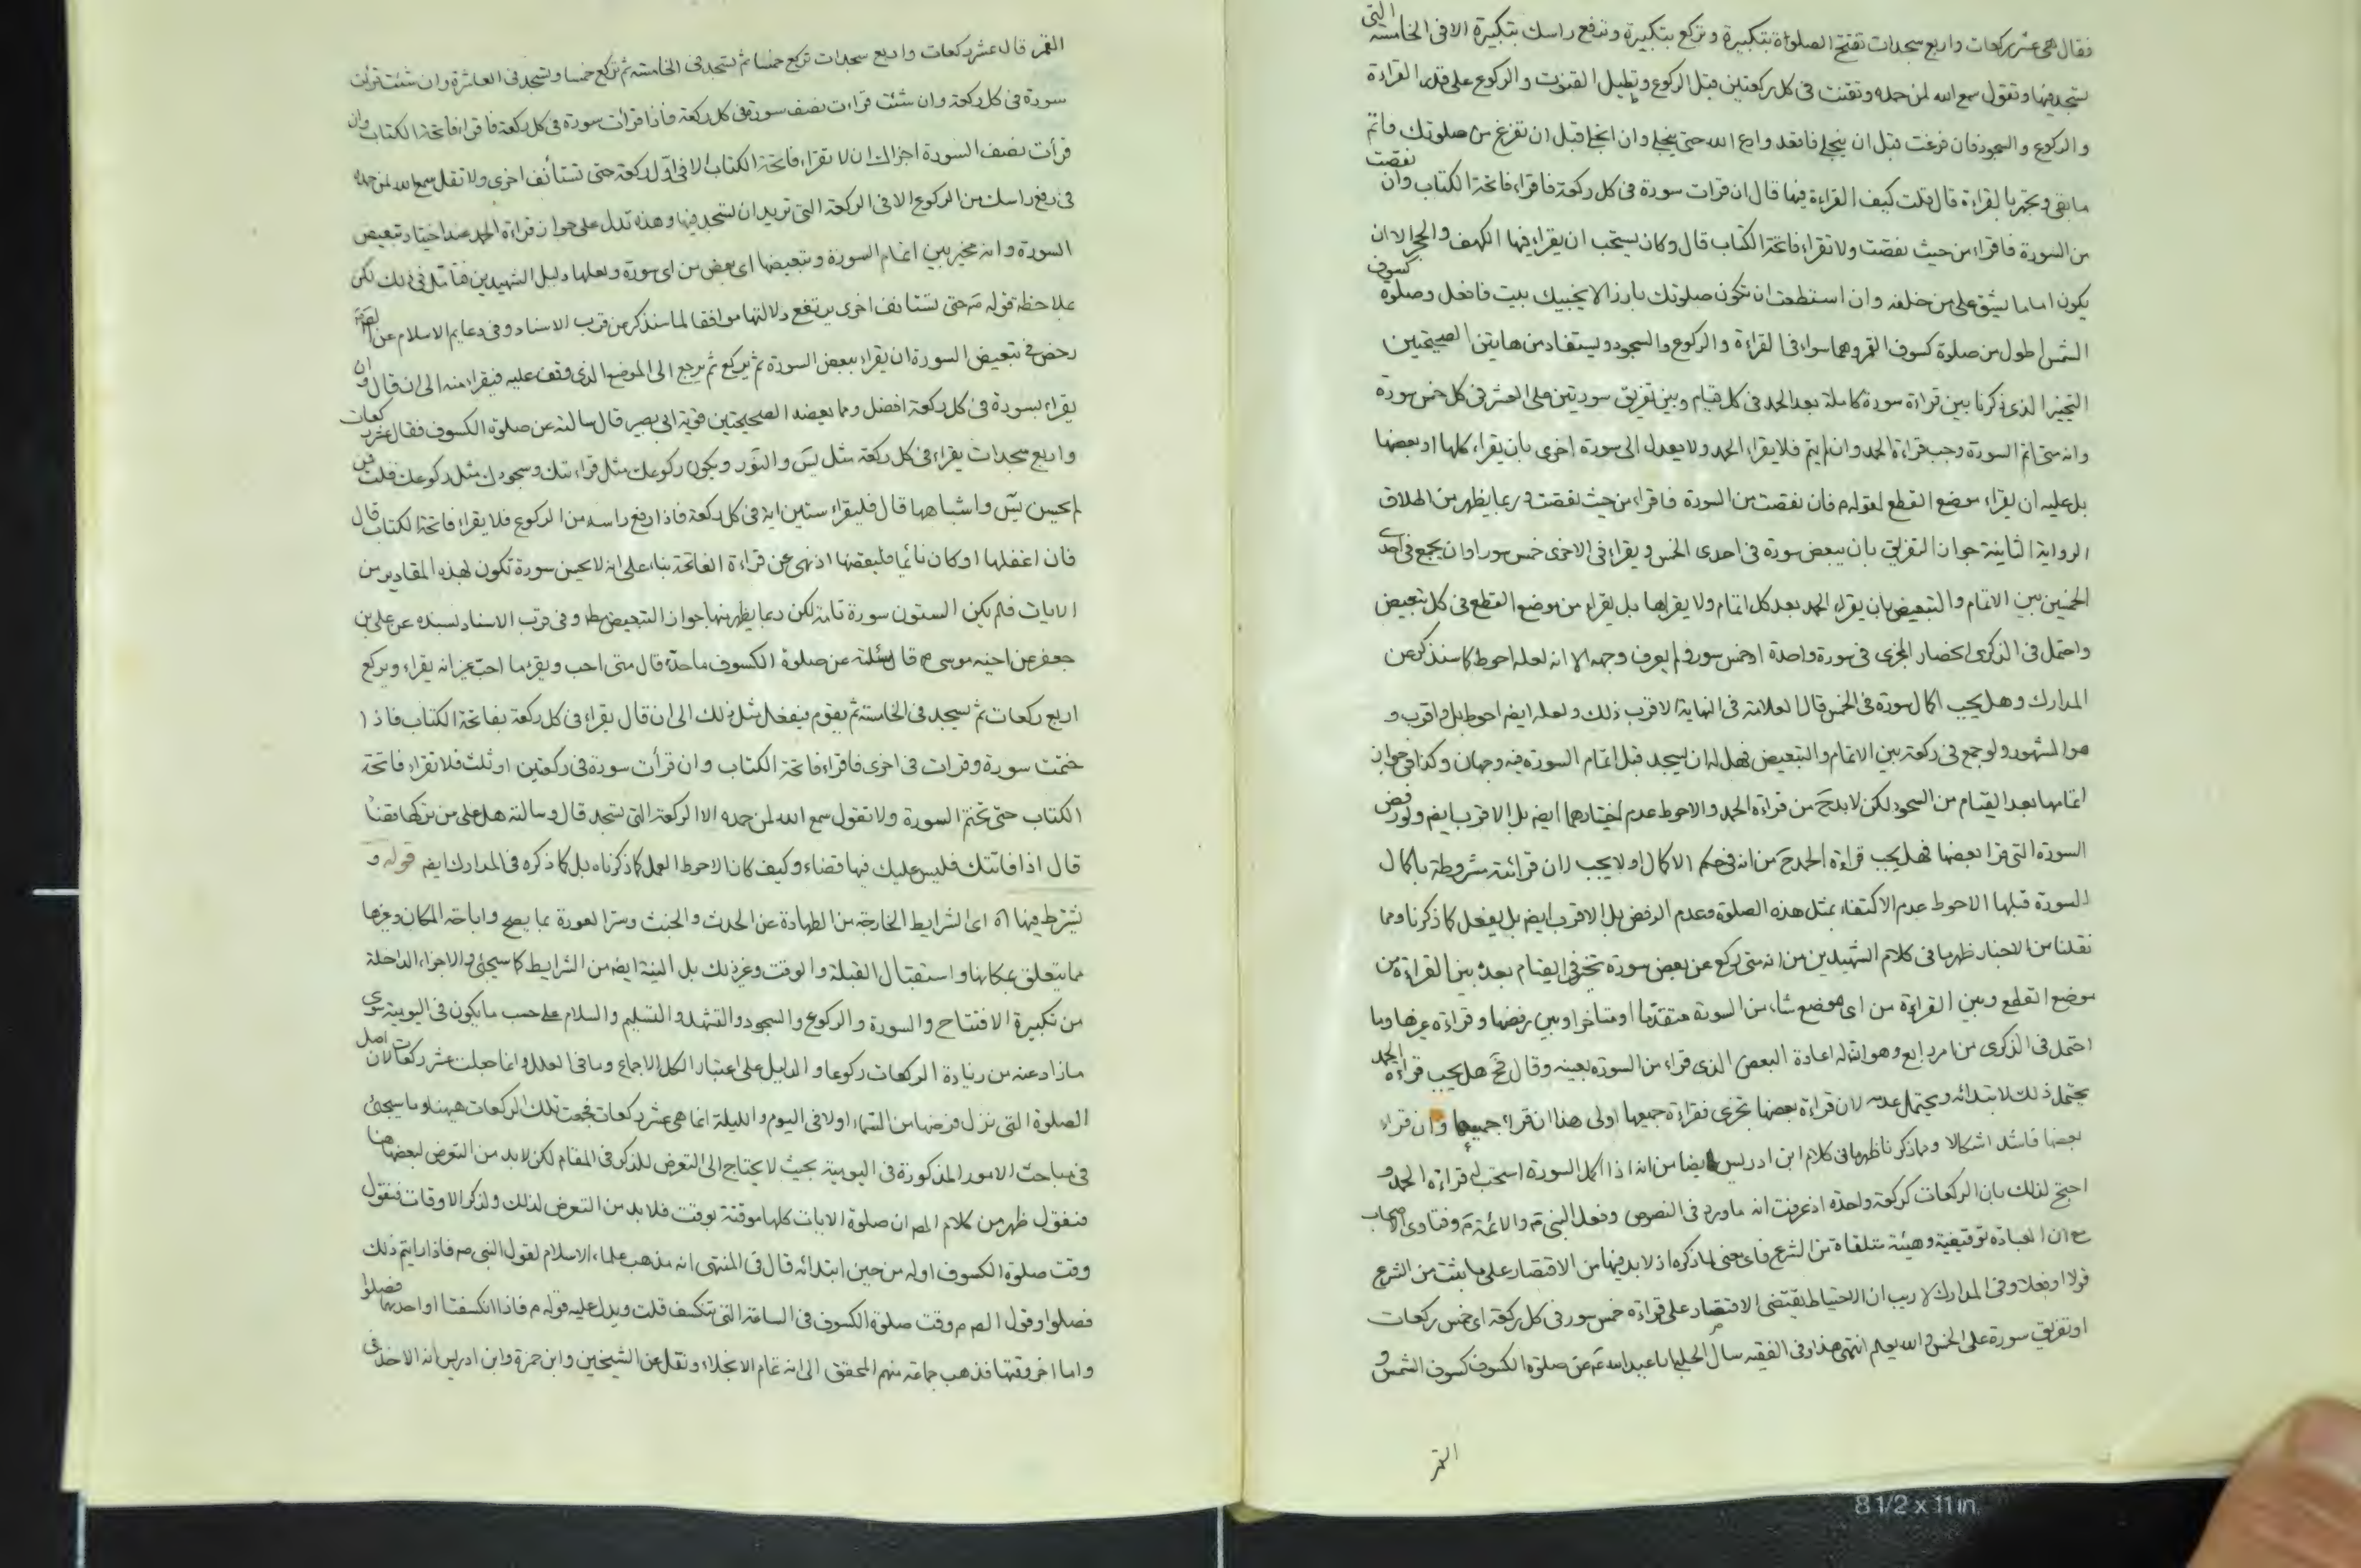 فقال هى عشر ركعات واربع سجدات تفتح الصلوة بتكبيرة وتركع بتكبيرة وترفع راسك بتكبيرة الا فى الخامسة التى
تسجد فيها وتقول سمع الله لمن حمده وتقنت فى كل ركعتين قبل الركوع وتطيل القنوت والركوع على قدر القراءة
والركوع والسجود فان فرغت قبل ان ينجلى فاقعد وادع الله حتى ينجلى وان انجلى قبل ان تفرغ من صلوتك فاتم
ما بقى وتجهر بالقراءة قال قلت كيف القراءة فيها قال ان قرات سورة فى كل ركعة فاقراء فاتحة الكتاب وان نقصت
من السورة فاقراء من حيث نقصت ولا تقراء فاتحة الكتاب قال وكان يستحب ان يقراء فيها الكهف والحجر الا ان
يكون اماما يشق على من خلفه وان استطعت ان تكون صلوتك بارزا لا يجنبك بيت فافعل وصلوة كسوف
الشمس اطول من صلوة كسوف القمر وهما سواء فى القراءة والركوع والسجود ويستفاد من هايتن الصحيحتين
التخيير الذى ذكرنا بين قراءة سورة كاملة بعد الحمد فى كل قيام وبين تفريق سورتين على العشر فى كل خمس سورة
وانه متى اتم السورة وجب قراءة الحمد وان لم يتم فلا يقراء الحمد ولا يعدل الى سورة اخرى بان يقراء كلها او بعضها
بل عليه ان يقراء موضع القطع لقوله م فان نقصت من السورة فاقراء من حيث نقصت وربما يظهر من اطلاق
الرواية الثانية جواز التفريق بان يبعض سورة فى احدى الخمس ويقراء فى الاخرى خمس سور او ان يجمع فى احدى
الخمسين بين الاتمام والتبعيض بان يقراء الحمد بعد كل اتمام ولا يقراها بل يقراء من موضع القطع فى كل تبعيض
واحتمل فى الذكرى انحصار المجزى فى سورة واحدة او خمس سور ولم يعرف وجهه الا انه لعله احوط كما سنذكر عن
المدارك وهل يجب اكمال سورة فى الخمس قال العلامة فى النهاية الاقرب ذلك ولعله ايضم احوط بل واقرب و
هو المشهور ولو جمع فى ركعة بين الاتمام والتبعيض فهل له ان يسجد قبل اتمام السورة فيه وجهان وكذا فى جواز
اتمامها بعد القيام من السجود لكن لا بد ح من قراءة الحمد والاحوط عدم اختيارهما ايضم بل الاقرب ايضم ولو رفض
السورة التى قرا بعضها فهل يجب قراءة الحمد ح من انه فى حكم الاكمال او لا يجب لان قرائته مشروطة باكمال
السورة قبلها الاحوط عدم الاكتفاء بمثل هذه الصلوة وعدم الرفض بل الاقرب ايضم بل يفعل كما ذكرنا ومما
نقلنا من الاخبار ظهر ما فى كلام الشهيدين من انه متى ركع عن بعض سورة تخير فى القيام بعده بين القراءة من
موضع القطع وبين القراءة من اى موضع شاء من السورة متقدما او متاخرا وبين رفضها وقراءة غيرها وما
احتمل فى الذكرى من امر رابع وهو ان له اعادة البعض الذى قراء من السورة بعينه وقال ح هل يجب قراءة الحمد
يحتمل ذلك لابتدائه ويحتمل عدمه لان قراءة بعضها تجزى فقراءة جميعها اولى هذا ان قراء جميعها وان قراء
بعضها فاشد اشكالا ومما ذكرنا ظهر ما فى كلام ابن ادريس ايضا من انه اذا اكمل السورة استحب له قراءة الحمد و
احتج لذلك بان الركعات كركعة واحدة اذ عرفت انه ما ورد فى النصوص وفعل النبى ص والائمة م وفتاوى الاصحاب
مع ان العبادة توقيفية وهيئة متلقاة من الشرع فاى معنى لما ذكره اذ لا بد فيها من الاقتصار على ما يثبت من الشرع
قولا او فعلا وفى المدارك لا ريب ان الاحتياط يقتضى الاقتصار على قراءة خمس سور فى كل ركعة اى خمس ركعات
او تفريق سورة على الخمس والله يعلم انتهى هذا وفى الفقيه سال الحلبى ابا عبد الله ع عن صلوة الكسوف كسوف الشمس و
القمر
القمر قال عشر ركعات واربع سجدات تركع خمسا ثم تسجد فى الخامسة ثم تركع خمسا وتسجد فى العاشرة وان شئت قرات
سورة فى كل ركعة وان شئت قرات نصف سورة فى كل ركعة فاذا قرات سورة فى كل ركعة فاقراء فاتحة الكتاب وان
قرأت نصف السورة اجزاك ان لا تقراء فاتحة الكتاب الا فى اول ركعة حتى تستأنف اخرى ولا تقل سمع الله لمن حمده
فى رفع راسك من الركوع الا فى الركعة التى تريد ان تسجد فيها وهذه تدل على جواز قراءة الحمد عند اختيار تبعيض
السورة وانه مخير بين اتمام السورة وتبعيضها اى بعض من اى سورة ولعلها دليل الشهيدين فتامل فى ذلك لكن
بملاحظة قوله م حتى تستانف اخرى يرتفع دلالتها موافقا لما سنذكر من قرب الاسناد وفى دعايم الاسلام عن الصم
رخص فى تبعيض السورة ان يقراء ببعض السورة ثم يركع ثم يرجع الى الموضع الذى وقف عليه فيقراء منه الى ان قال وان
يقراء بسورة فى كل ركعة افضل ومما يعضد الصحيحتين قوية ابى بصير قال سالته عن صلوة الكسوف فقال عشر ركعات
واربع سجدات يقراء فى كل ركعة مثل يس والنور ويكون ركوعك مثل قراءتك وسجودك مثل ركوعك قلت فمن
لم يحسن يس واشباهها قال فليقراء ستين اية فى كل ركعة فاذا رفع راسه من الركوع فلا يقراء فاتحة الكتاب قال
فان اغفلها او كان نائما فليقضها اذ نهى عن قراءة الفاتحة بناء على انه لا يحسن سورة تكون لهذه المقادير من
الايات فلم يكن الستون سورة تامة لكن ربما يظهر منها جواز التبعيض مط وفى قرب الاسناد بسنده عن على بن
جعفر عن اخيه موسى ع قال سئلته عن صلوة الكسوف ما حده قال متى احب ويقرء ما احب غير انه يقراء ويركع
اربع ركعات ثم يسجد فى الخامسة ثم يقوم فيفعل مثل ذلك الى ان قال يقراء فى كل ركعة بفاتحة الكتاب فاذا
ختمت سورة وقرات فى اخرى فاقراء فاتحة الكتاب وان قرأت سورة فى ركعتين او ثلث فلا تقراء فاتحة
الكتاب حتى تختم السورة ولا تقول سمع الله لمن حمده الا الركعة التى تسجد قال وسالته هل على من تركها قضاء
قال اذا فاتتك فليس عليك فيها قضاء وكيف كان الاحوط العمل كما ذكرناه بل كما ذكره فى المدارك ايضم قوله و
يشترط فيها اه اى الشرايط الخارجة من الطهارة عن الحدث والخبث وستر العورة بما يصح واباحة المكان وغيرها
مما يتعلق بمكانها واستقبال القبلة والوقت وغير ذلك بل النية ايضم من الشرايط كما سيجئ والاجزاء الداخلة
من تكبيرة الافتتاح والسورة والركوع والسجود والتشهد والتسليم والسلام على حسب ما يكون فى اليومية سوى
ما زاد عنه من زيادة الركعات ركوعا والدليل على اعتبار الكل الاجماع وما فى العلل وانما جعلت عشر ركعات لان اصل
الصلوة التى نزل فرضها من السماء اولا فى اليوم والليلة انما هى عشر ركعات فجمعت تلك الركعات ههنا وما سيجئ
فى مباحث الامور المذكورة فى اليومية بحيث لا يحتاج الى التعرض للذكر فى المقام لكن لا بد من التعرض لبعضها هنا
فنقول ظهر من كلام المص ان صلوة الايات كلها موقتة بوقت فلا بد من التعرض لذلك ولذكر الاوقات فنقول
وقت صلوة الكسوف اوله من حين ابتدائه قال فى المنتهى انه مذهب علماء الاسلام لقول النبى ص فاذا رايتم ذلك
فصلوا وقول الص م وقت صلوة الكسوف فى الساعة التى تنكسف قلت ويدل عليه قوله م فاذا انكسفتا او احديهما فصلوا
واما اخر وقتها فذهب جماعة منهم المحقق الى انه تمام الانجلاء ونقل عن الشيخين وابن حمزة وابن ادريس انه الاخذ فى